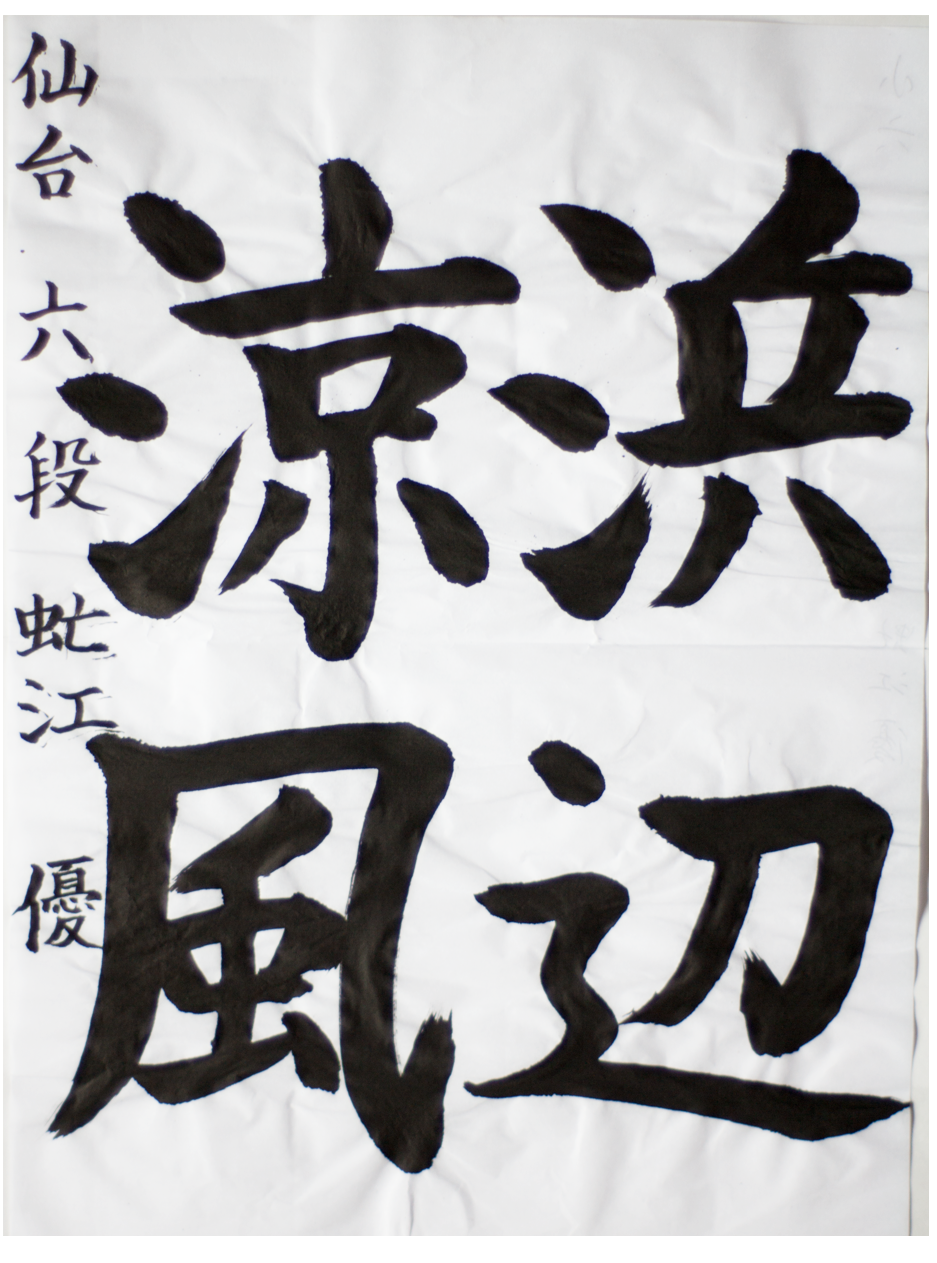 浜辺
涼風
仙台 六段 虻江 優